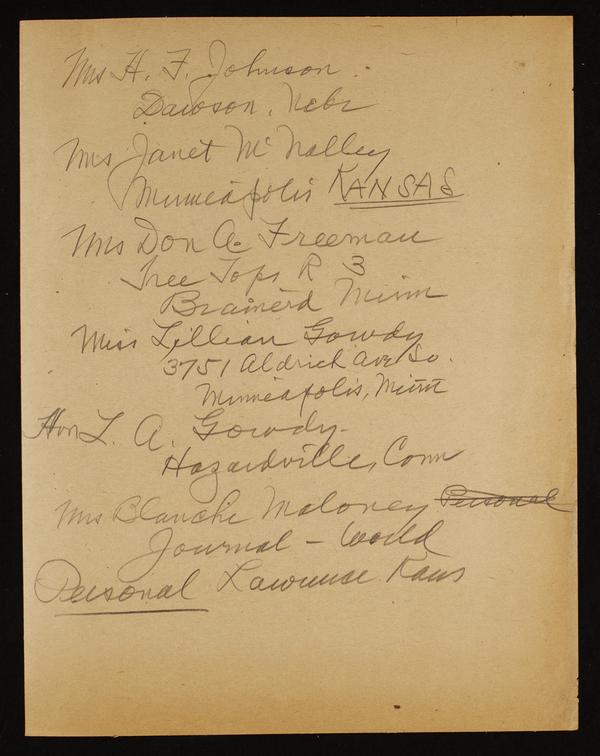 Mrs H. F. Johnson.
Dawson, Nebr
Mrs Janet McNalley
Minneapolis KANSAS
Mrs Don A. Freeman
Tree Tops R 3
Brainerd Minn
Miss Lillian Gowdy
3751 Aldrich Ave So.
Minneapolis, Minn
Hon L. A. Gowdy.
Hazardville, Conn
Mrs Blanche Maloney Personal
Journal - World
Personal Lawrence Kans